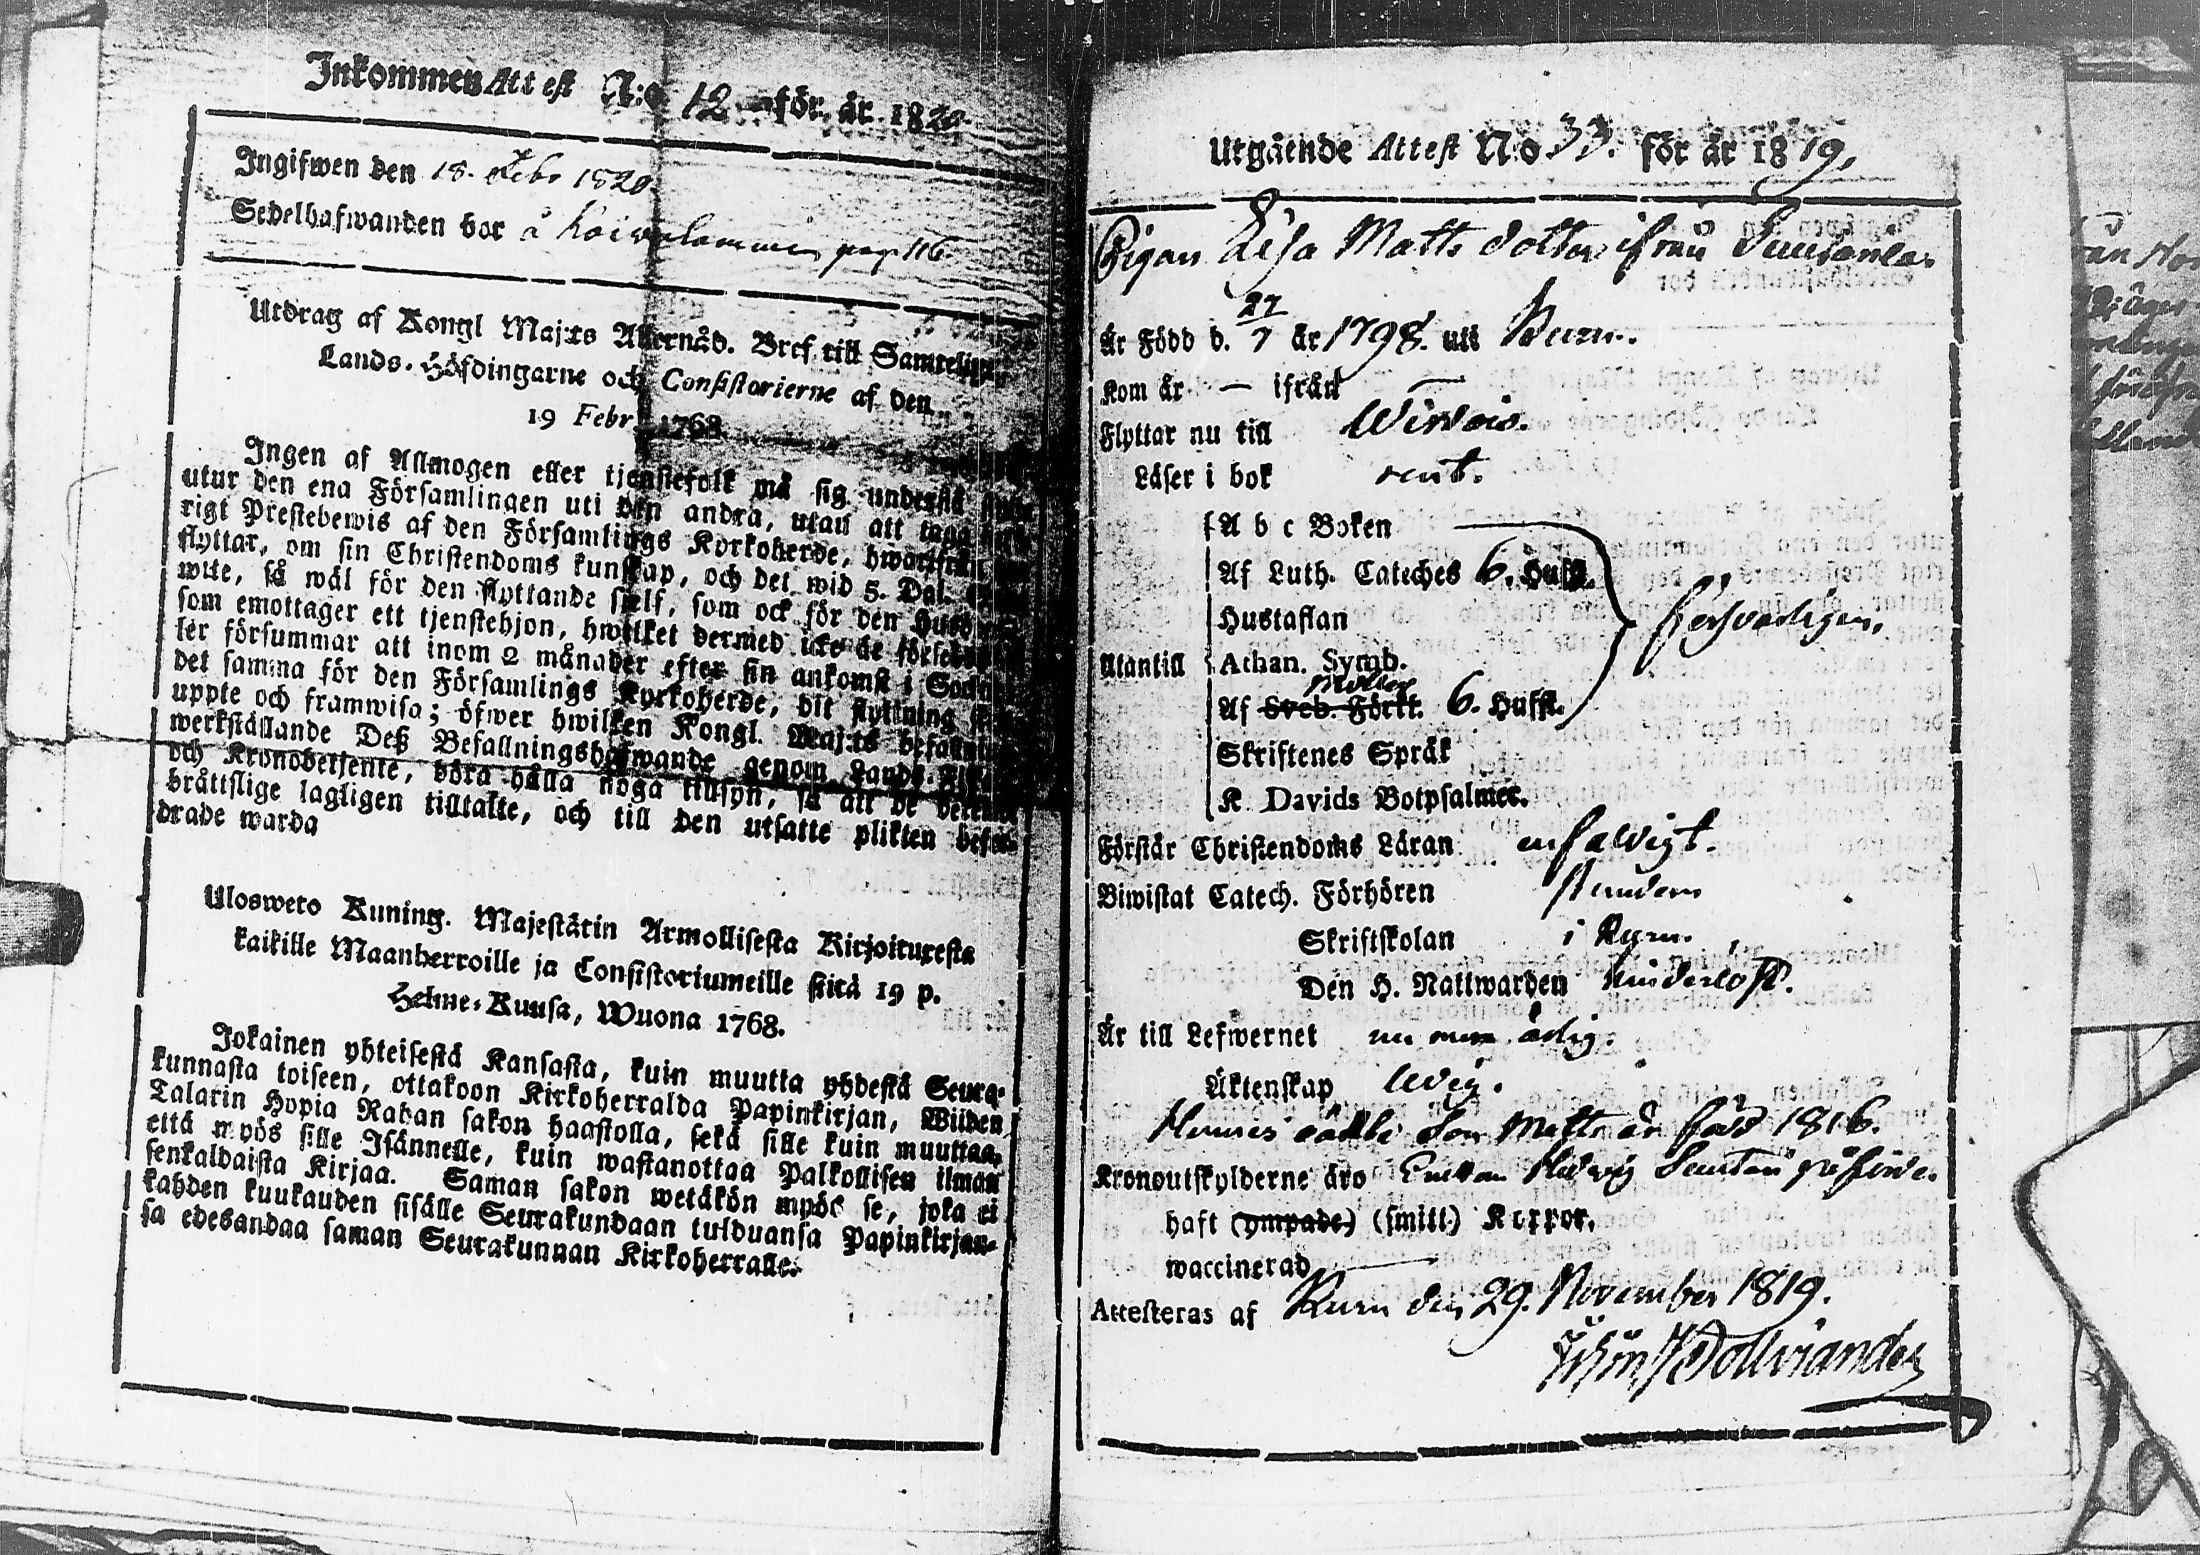 Inkommen Attest N:o 12 för år 1820
Ingifwen den 18. Febr 1820
Sedelhafwanden bor å Koiwulammi pag. 116.
Utdrag af Kongl Maj:ts Allernåd. Bref till Samtelige
Lands-Höfdingarne och Consistorierne af den
19 Febr. 1768.
Ingen af Allmogen eller tjenstefolk må sig understå
utur den ena Församlingen uti den andra, utan att taga
rigt Prestebewis af den Församlings Kyrkoherde, hwarifrån
flyttar, om sin Christendoms kunskap, och det wid 5. Dal.
wite, så wäl för den flyttande sielf, som ock för den
som emottager ett tjenstehjon, hwilket dermed icke är
ler försummar att inom 2 månader efter sin ankomst i
det samma för den Församlings Kyrkoherde, dit flyttning
uppte och framwisa; öfwer hwilken Kongl. Maj:ts befallning
werkställande Deß Befallningshafwande genom Lands-
och Kronobetjente, böra hålla noga tillsyn, så att de
bråttslige lagligen tilltalte, och till den utsatte plikten
drade warda
Ulosweto Kuning. Majestätin Armollisesta Kirjoituxesta
kaikille Maanherroille ja Consistoriumeille siitä 19 p.
Helme-Kuusa, Wuona 1768.
Jokainen yhteisestä Kansasta, kuin muutta yhdestä Seura-
kunnasta toiseen, ottakoon Kirkoherralda Papinkirjan, Wiiden
Talarin Hopia Rahan sakon haastolla, sekä sille kuin muuttaa,
että myös sille Isännelle, kuin wastanottaa Palkollisen ilman
senkaldaista Kirjaa. Saman sakon wetäkön myös se, joka ei
kahden kuukauden sisälle Seurakundaan tulduansa Papinkirjan-
sa edesandaa saman Seurakunnan Kirkoherralle.
Utgående Attest No 33. för år 1819.
Pigan Lisa Matts dotter ifrån
Är Född d. 27/7 år 1798. uti Kuru.
Kom år — ifrån —
Flyttar nu till Wirdois.
Läser i bok rent.
A b c Boken
Af Luth. Cateches 6. Hufst.
Hustaflan
Utantill Athan. Symb.
Af Sveb. Förkl. 6. Hufst.
Skriftenes Språk
K. Davids Botpsalmer.
Förstår Christendoms Läran enfaldigt.
Biwistat Catech. Förhören stundom
Skriftskolan i Kuru.
Den H. Nattwarden
Är till Lefwernet nu mera ärlig.
Äktenskap ledig.
Hennes oäkta Son Matts är född 1816.
Kronoutskylderne äro
haft (ympade) (smitt) Koppor.
waccinerad —
Attesteras af Kuru den 29. November 1819.